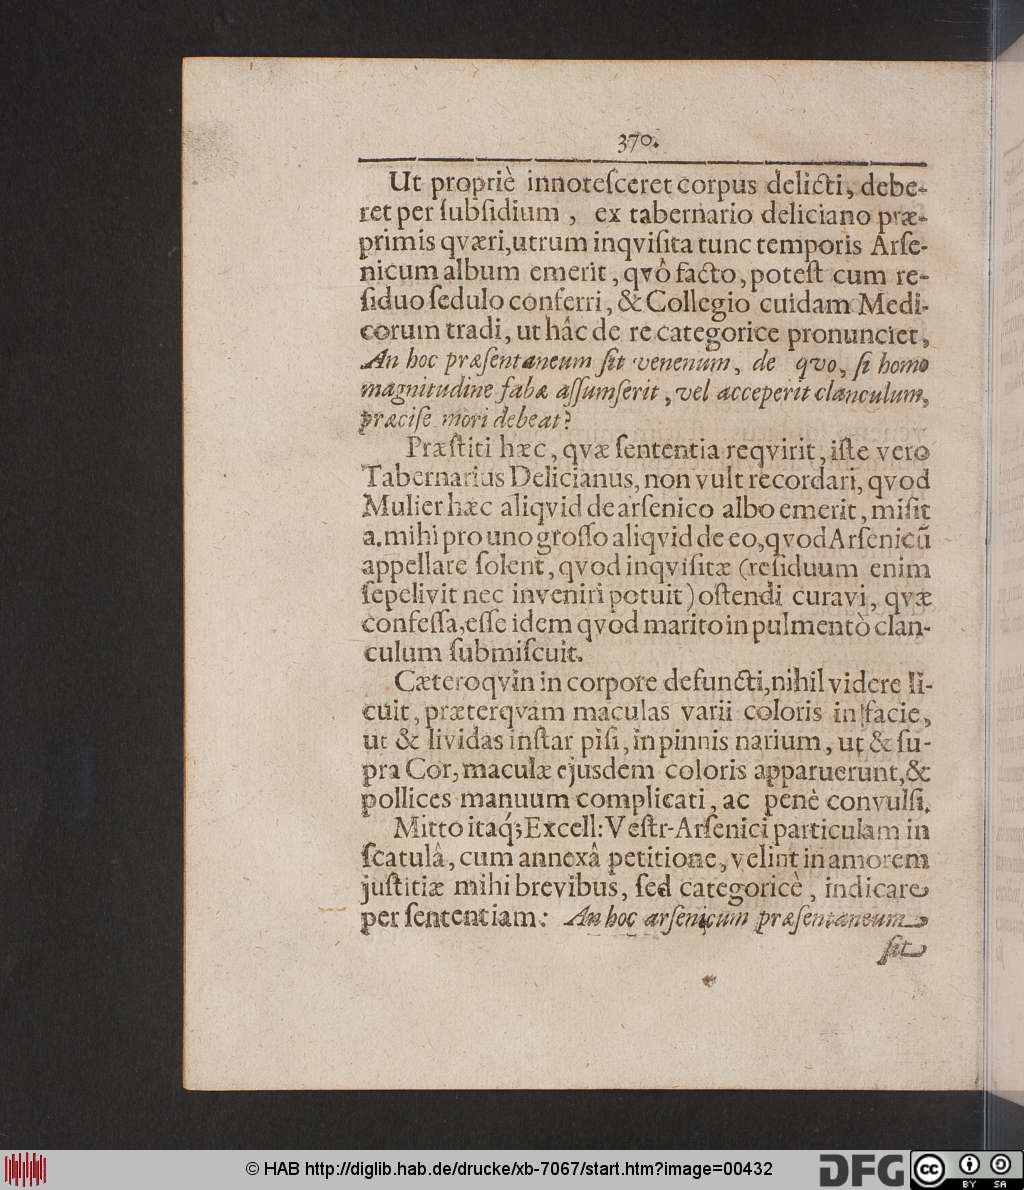 370.
Ut propriè innoteſceret corpus delicti, debe-
ret per ſubſidium, ex tabernario deliciano præ-
primis qværi, utrum inqviſita tunc temporis Arſe-
nicum album emerit, qvô facto, poteſt cum re-
ſiduo ſedulo conferri, & Collegio cuidam Medi-
corum tradi, ut hâc de re categorice pronunciet,
An hoc præſentaneum ſit venenum, de qvo, ſi homo
magnitudine fabæ aſſumſerit, vel acceperit clanculum,
præciſe mori debeat?
Præſtiti hæc, qvæ ſententia reqvirit, iſte vero
Tabernarius Delicianus, non vult recordari, qvod
Mulier hæc aliqvid de arſenico albo emerit, miſit
a. mihi pro uno groſſo aliqvid de eo, qvod Arſenicū
appellare ſolent, qvod inqviſitæ (reſiduum enim
ſepelivit nec inveniri potuit) oſtendi curavi, qvæ
confeſſa, eſſe idem qvod marito in pulmentò clan-
culum ſubmiſcuit.
Cæteroqvin in corpore defuncti, nihil videre li-
cuit, præterqvam maculas varii coloris in facie,
ut & lividas inſtar piſi, in pinnis narium, ut & ſu-
pra Cor, maculæ ejusdem coloris apparuerunt, &
pollices manuum complicati, ac penè convulſi.
Mitto itaq́; Excell: Veſtr-Arſenici particulam in
ſcatulâ, cum annexâ petitione, velint in amorem
juſtitiæ mihi brevibus, ſed categoricè, indicare
per ſententiam: An hoc arſenicum præſentaneum
ſit
© HAB http://diglib.hab.de/drucke/xb-7067/start.htm?image=00432
DFG
cc
BY SA